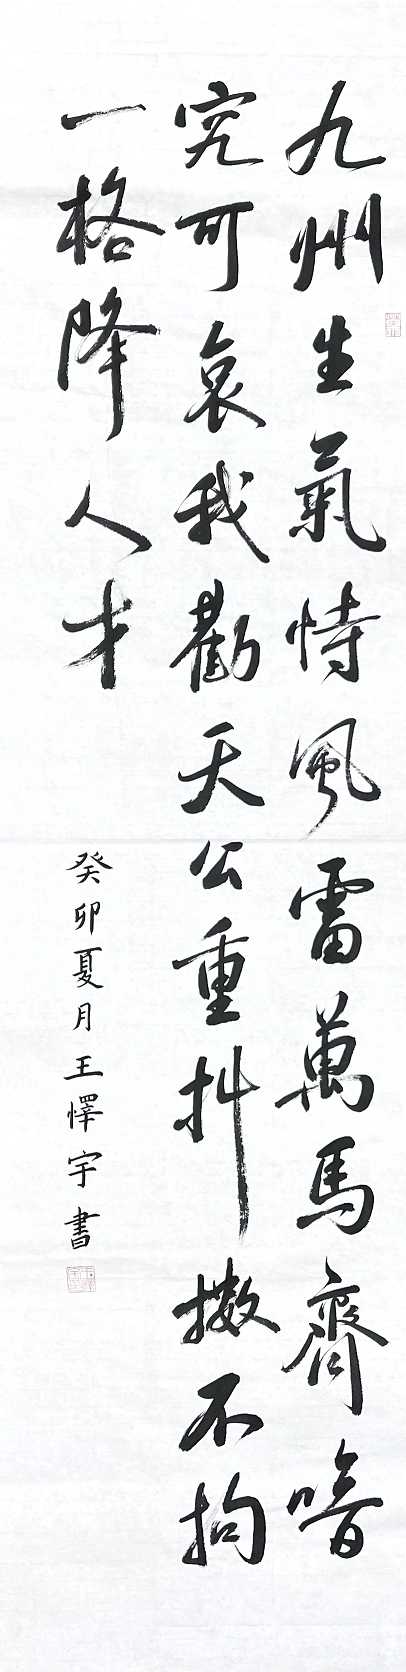 九州生氣恃風雷萬馬齊喑
究可哀我勸天公重抖擻不拘
一格降人才
癸卯夏月王懌宇書